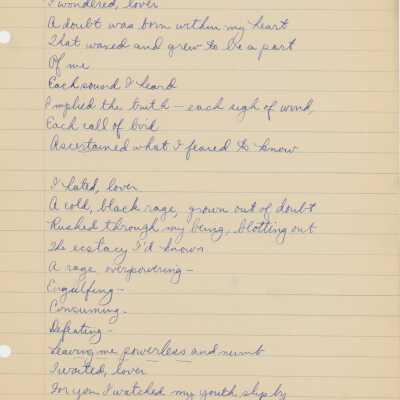 I wondered, lover
A doubt was born within my heart
That waxed and grew to be a part
Of me
Each sound I heard
Implied the truth — each sigh of wind,
Each call of bird
Ascertained what I feared to know
I hated, lover.
A cold, black rage, grown out of doubt
Rushed through my being, blotting out
The ecstacy I'd known
A rage overpowering —
Engulfing —
Consuming.
Defeating —
Leaving me powerless and numb
I waited, lover
For you I watched my youth slip by